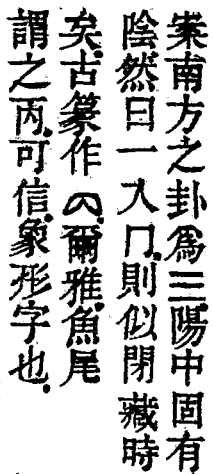 案南方之卦爲☲陽中固有
陰然曰一入冂則似閉藏時
矣古篆作爾雅魚尾
謂之丙可信象形字也